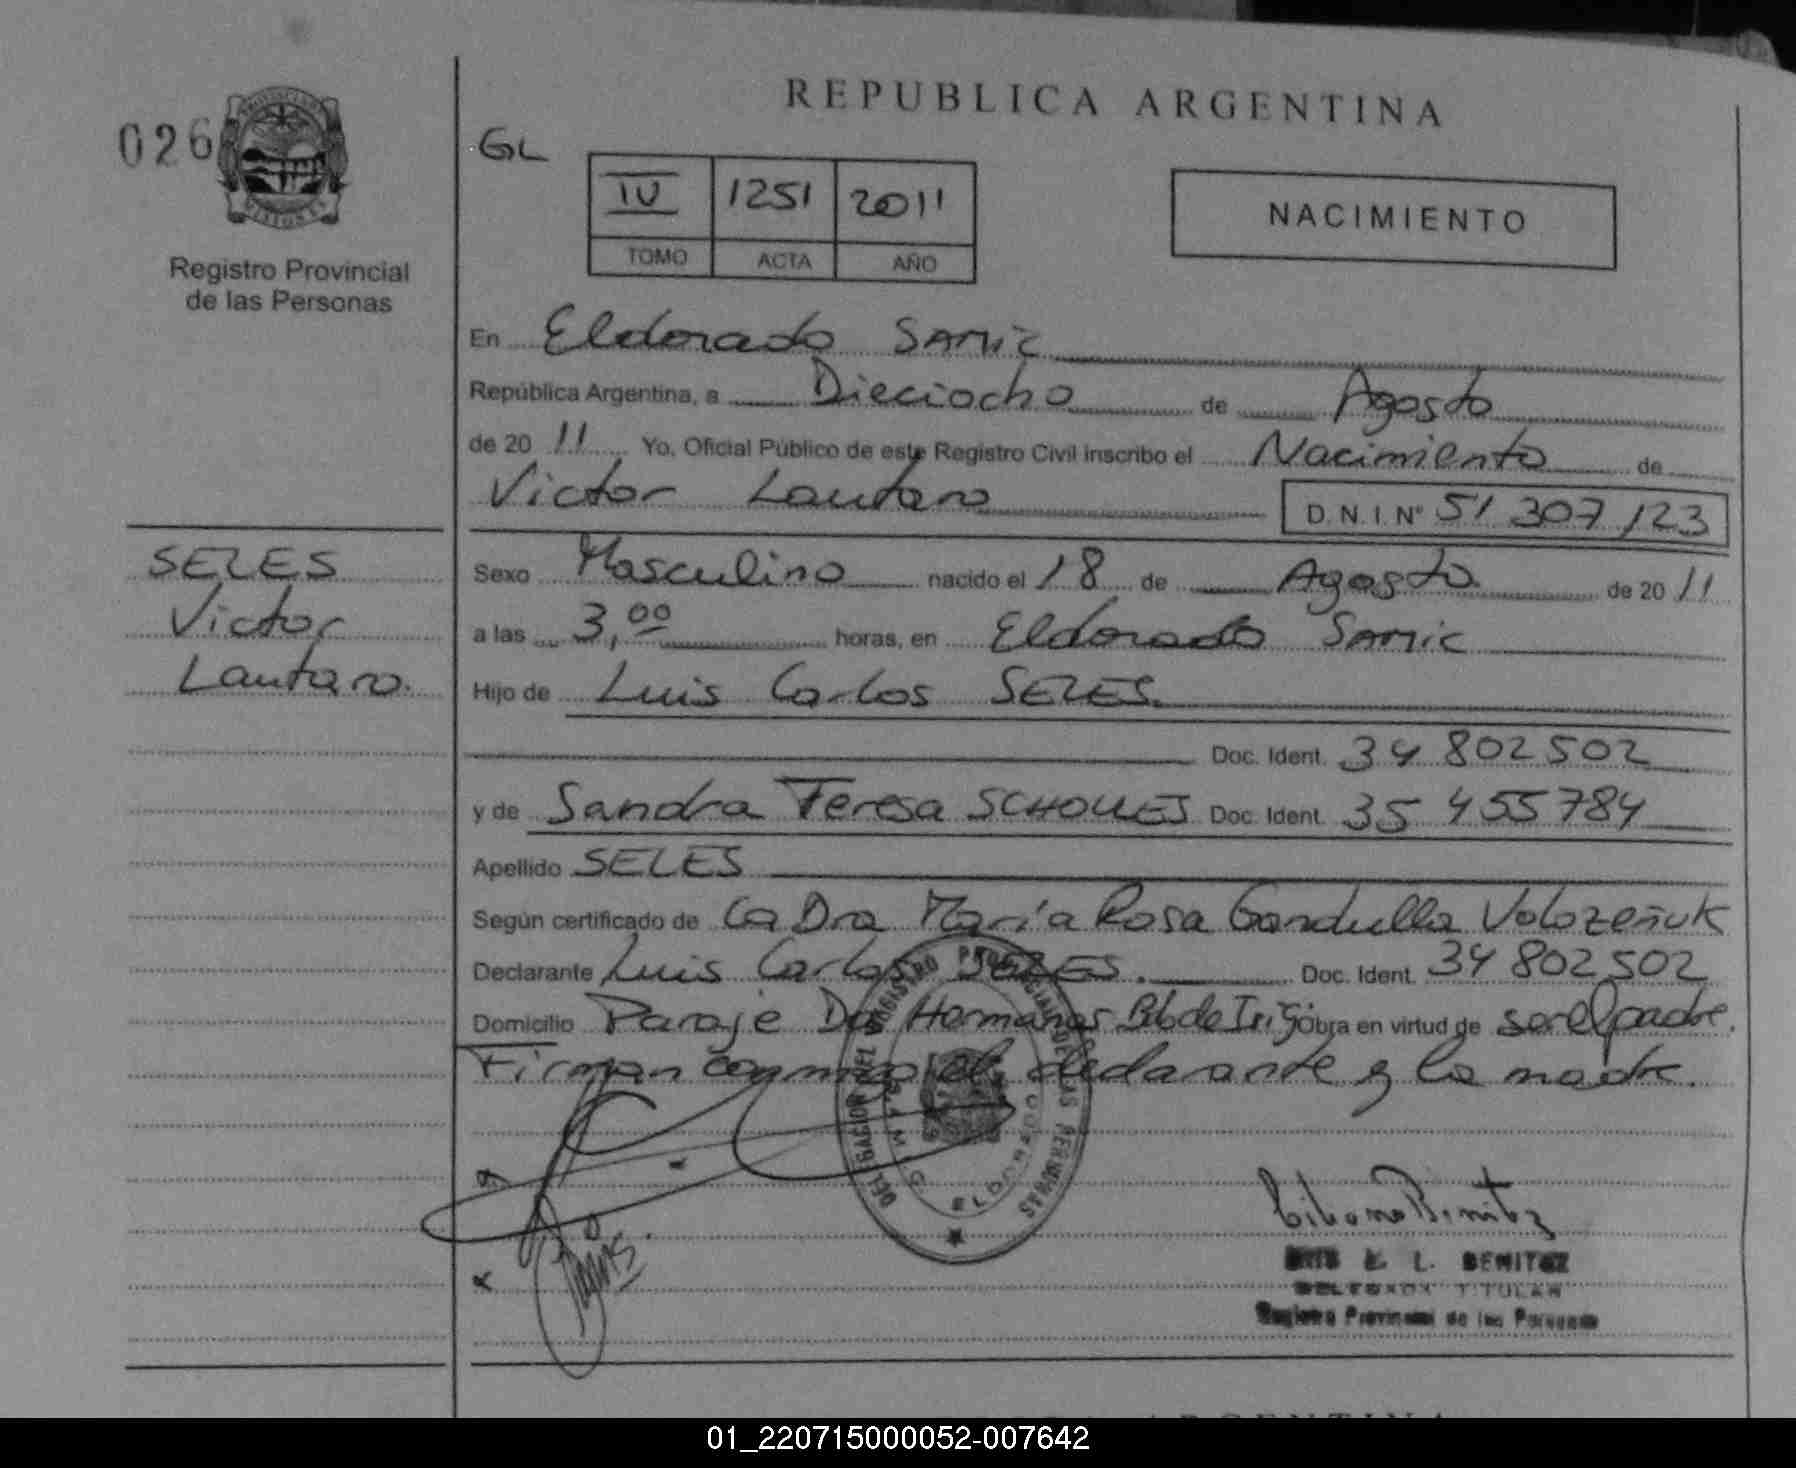 REPUBLICA ARGENTINA
026
PROVINCIA DE MISIONES
Registro Provincial
de las Personas
GL
IV 1251 2011
TOMO ACTA AÑO
NACIMIENTO
En Eldorado SAMIC
República Argentina, a Dieciocho de Agosto
de 20 11 Yo, Oficial Público de este Registro Civil inscribo el Nacimiento de
Victor Lautaro D.N.I. Nº 51 307 123
SELES
Victor
Lautaro.
Sexo Masculino nacido el 18 de Agosto de 20 11
a las 3,00 horas, en Eldorado SAMIC
Hijo de Luis Carlos SELES.
Doc. Ident. 34 802 502
y de Sandra Teresa Doc. Ident. 35 455 784
Apellido SELES
Según certificado de La Dra María Rosa Gandulla
Declarante Luis Carlos SELES. Doc. Ident. 34 802 502
Domicilio Paraje Dos Hermanas Obra en virtud de ser el padre.
Firman conmigo el declarante y la madre.
DELEGACION DEL REGISTRO PROVINCIAL DE LAS PERSONAS
ELDORADO
L. BENITEZ
TITULAR
Registro Provincial de las Personas
01_220715000052-007642